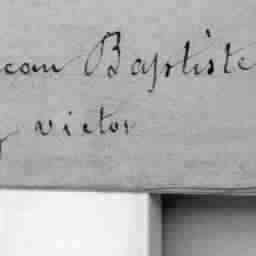 ean Baptiste
victor